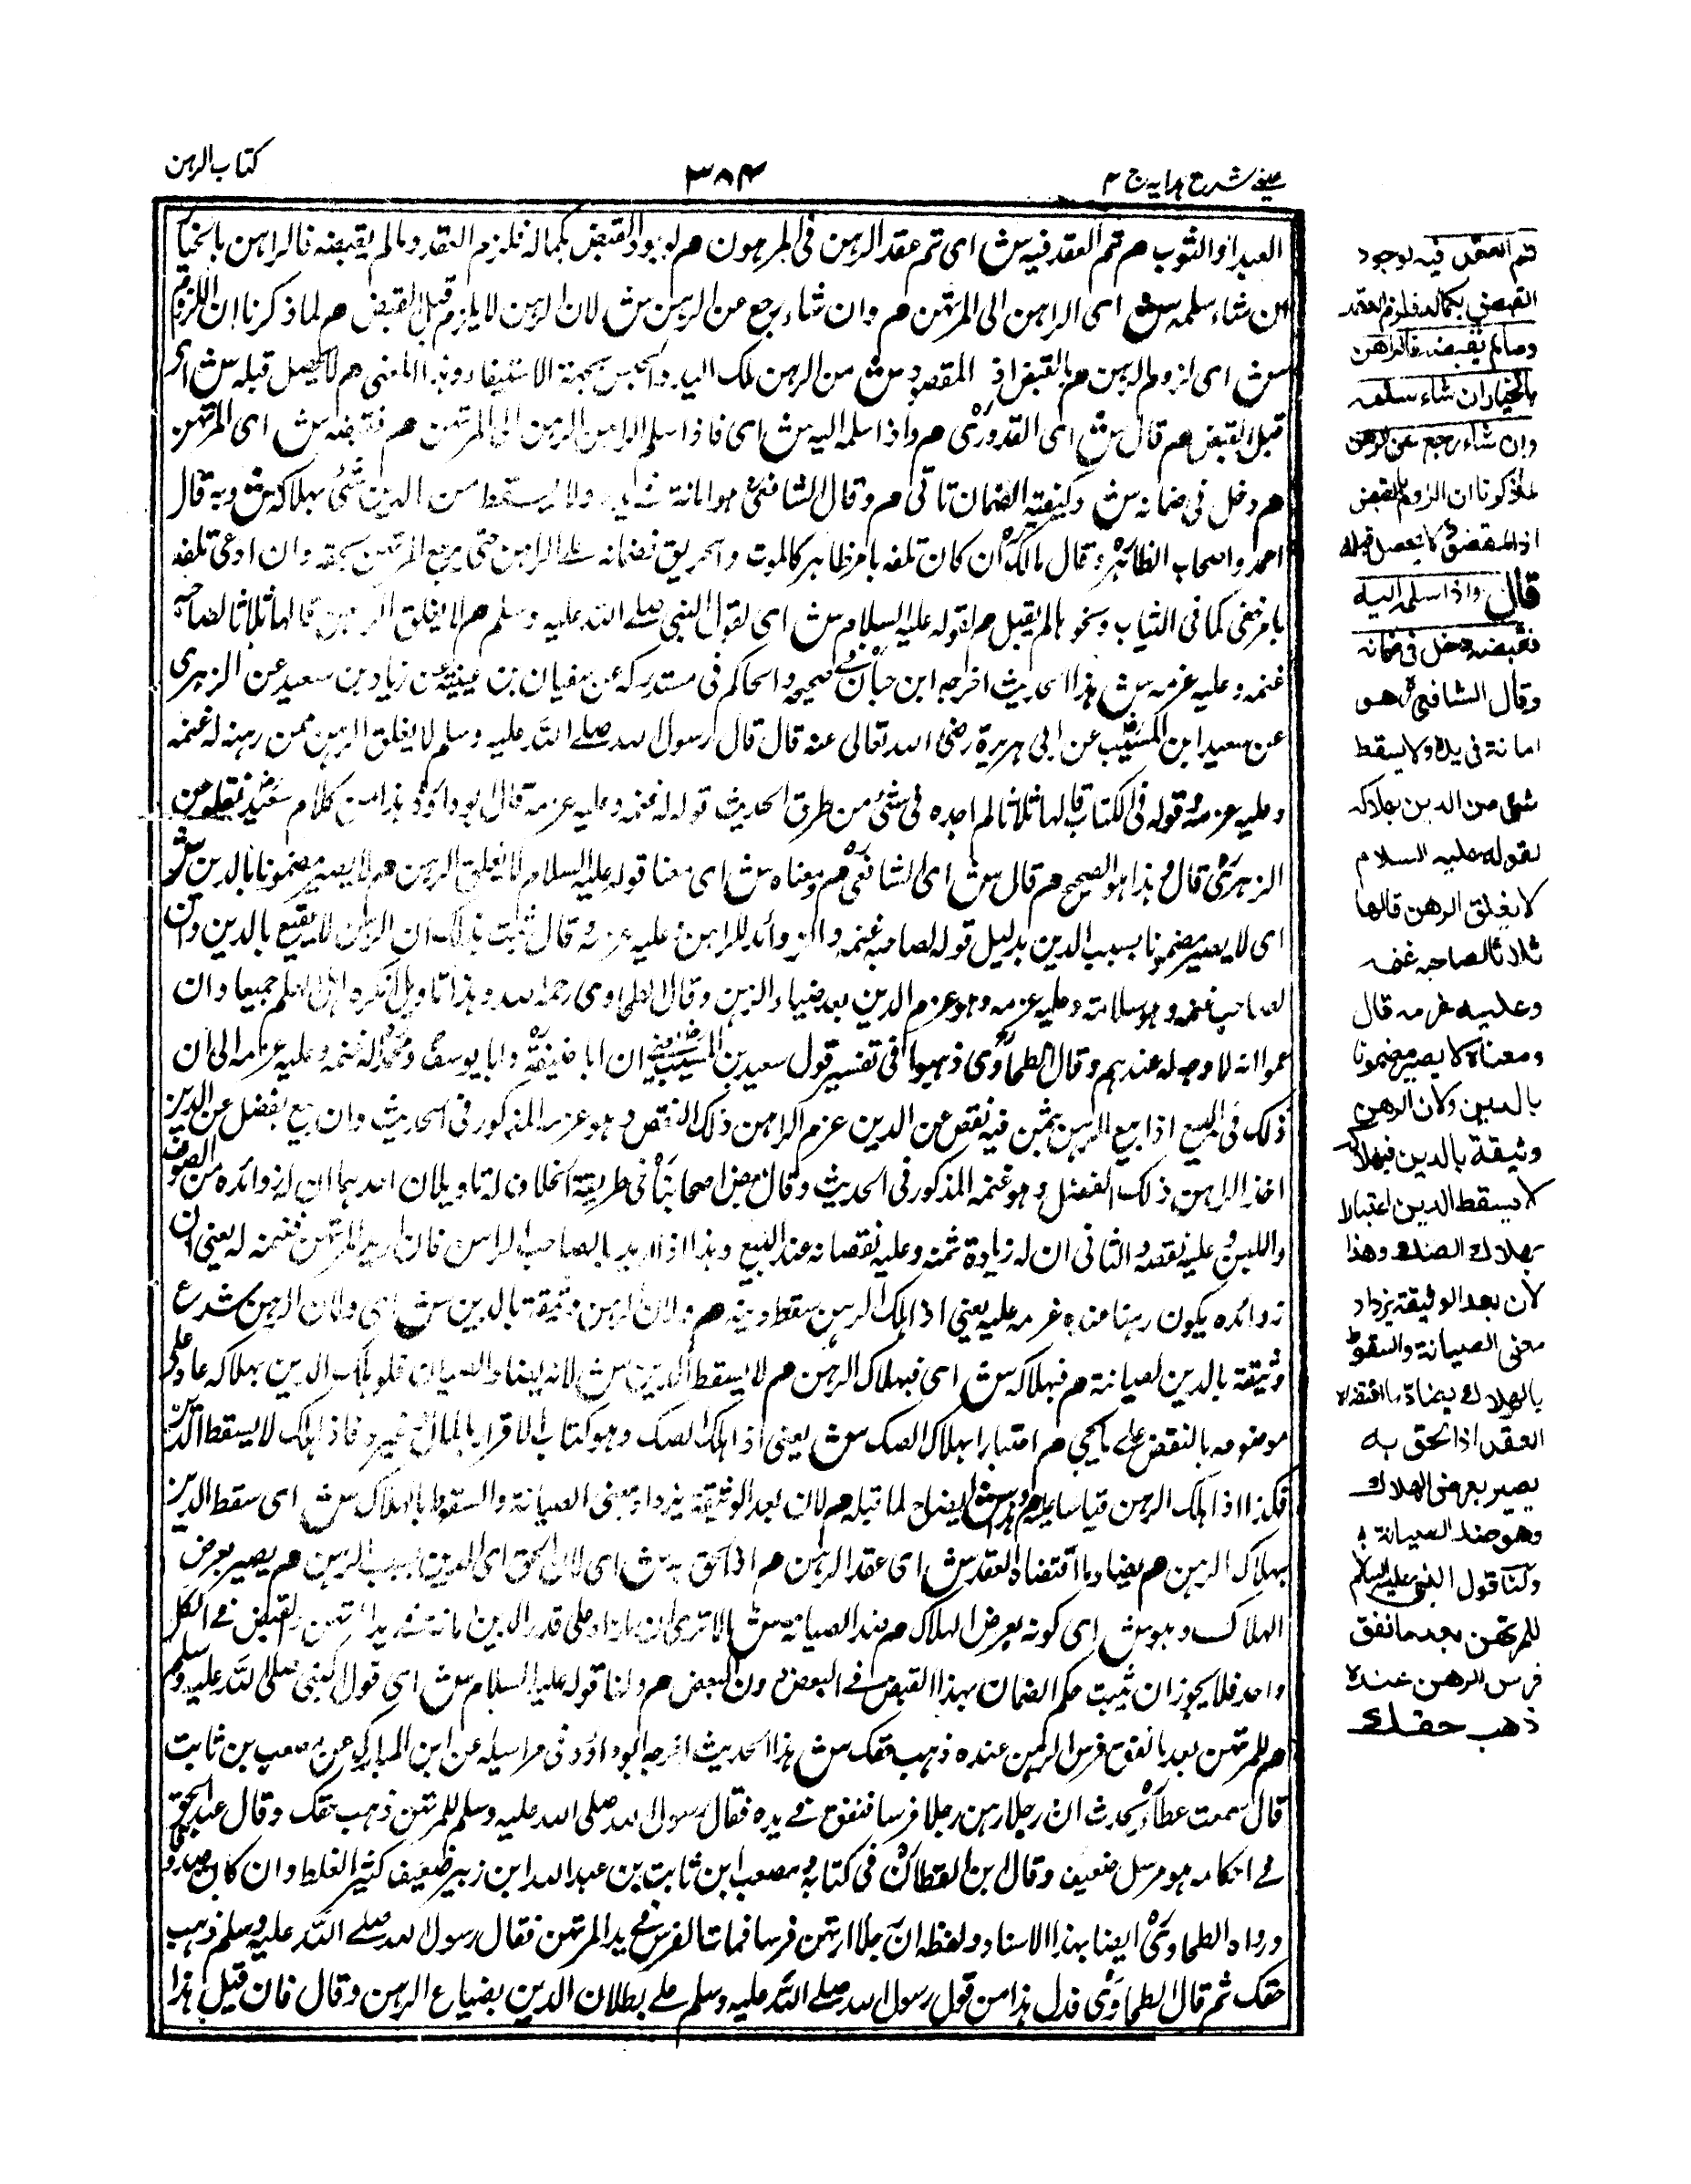 عینی شرح ہدایہ ج ۴
۳۸۴
کتاب الرہن
العبد او الثوب ھم تم العقد فیہ ش ای تم عقد الرہن فی المرہون ھم لوجود القبض بکمالہ فلزم العقد ومالم یقبضہ فالراہن بالخیار
ان شاء سلمہ ش ای الراہن الی المرتہن ھم وان شاء رجع عن الرہن ش لان الرہن لا یلزم قبل القبض ھم لما ذکرنا ان اللزوم
ش ای لزوم الرہن ھم بالقبض اذ المقصود ش من الرہن ملک الید والحبس بجہۃ الاستیفاء وہذا المعنی ھم لا یحصل قبلہ ش ای
قبل القبض ھم قال ش ای القدوری ھم واذا سلمہ الیہ ش ای فاذا سلم الراہن الرہن الی المرتہن ھم فقبضہ ش ای المرتہن
ھم دخل فی ضمانہ ش وکیفیۃ الضمان تاتی ھم وقال الشافعی ہو امانۃ فی یدہ ولا یسقط من الدین شئ بہلاکہ ش وبہ قال
احمد واصحاب الظاہر وقال مالک ان کان تلفہ بامر ظاہر کالموت والحریق فضمانہ علی الراہن حتی یرجع المرتہن بحقہ وان ادعی تلفہ
بامر خفی کما فی الثیاب ونحوہا لم یقبل ھم لقولہ علیہ السلام ش ای لقول النبی صلے اللہ علیہ وسلم ھم لا یغلق الرہن قالہا ثلاثا لصاحبہ
غنمہ وعلیہ غرمہ ش ہذا الحدیث اخرجہ ابن حبان فی صحیحہ والحاکم فی مستدرکہ عن سفیان بن عیینۃ عن زیاد بن سعید عن الزہری
عن سعید ابن المسیب عن ابی ہریرۃ رضی اللہ تعالی عنہ قال قال رسول اللہ صلے اللہ علیہ وسلم لا یغلق الرہن ممن رہنہ لہ غنمہ
وعلیہ غرمہ قولہ فی الکتاب قالہا ثلاثا لم اجدہ فی شئ من طرق الحدیث قولہ لہ غنمہ وعلیہ غرمہ قال ابو داؤد ہذا من کلام سعید نقلہ عن
الزہری قال وہذا ہو الصحیح ھم قال ش ای الشافعی ھم ومعناہ ش ای معنا قولہ علیہ السلام لا یغلق الرہن ھم لا یصیر مضمونا بالدین ش
ای لا یصیر مضمونا بسبب الدین بدلیل قولہ لصاحبہ غنمہ والزوائد للراہن وعلیہ غرمہ قال ثبت بذلک ان الرہن لا یضیع بالدین وان
لصاحبہ غنمہ وہو سلامتہ وعلیہ غرمہ وہو غرم الدین بعد ضیاع الرہن وقال الطحاوی رحمہ اللہ وہذا تاویل انکرہ اہل العلم جمیعا وان
عموا انہ لا وجہ لہ عندہم وقال الطحاوی ذہبوا فی تفسیر قول سعید بن المسیب ان ابا حنیفۃ وابا یوسف ومحمد لہ غنمہ وعلیہ غرمہ الی ان
ذلک فی البیع اذا بیع الرہن بثمن فیہ نقص عن الدین غرم الراہن ذلک النقص وہو غرمہ المذکور فی الحدیث وان بیع بفضل عن الدین
اخذ الراہن ذلک الفضل وہو غنمہ المذکور فی الحدیث وقال بعض اصحابنا فی طریقۃ الخلاف لہ تاویلان احدہما ان لہ زوائدہ من الصوف
واللبن وعلیہ نفقتہ والثانی ان لہ زیادۃ ثمنہ وعلیہ نقصانہ عند البیع وہذا اذا ارید بالصاحب الراہن فان ارید المرتہن فغنمہ لہ یعنی ان
زوائدہ یکون رہنا عندہ غرمہ علیہ یعنی اذا ہلک الرہن سقط دینہ ھم ولان الرہن وثیقۃ بالدین ش ای ولان الرہن شرع
وثیقۃ بالدین لصیانتہ ھم فبہلاکہ ش ای فبہلاک الرہن ھم لا یسقط الدین ش لانہ یضاد الصیانۃ فلو ہلک الدین بہلاکہ عاد علی
موضوعہ بالنقض علی ما یجئ ھم اعتبارا بہلاک الصک ش یعنی اذا ہلک الصک وہو کتاب الاقرار بالمال وغیرہ فاذا ہلک لا یسقط الدین
فکذا اذا ہلک الرہن قیاسا علیہ ھم وہذا ش ایضاح لما قبلہ ھم لان بعد الوثیقۃ یزداد معنی الصیانۃ والسقوط بالہلاک ش ای سقط الدین
بہلاک الرہن ھم یضاد ما اقتضاہ العقد ش ای عقد الرہن ھم اذ الحق بہ ش ای لان الحق ای الدین بسبب الرہن ھم یصیر بعرض
الہلاک وہو ش ای کونہ بعرض الہلاک ھم ضد الصیانۃ ش الا تری ان ما زاد علی قدر الدین امانۃ فی ید المرتہن والقبض فی الکل
واحد فلا یجوز ان یثبت حکم الضمان بہذا القبض فے البعض دون البعض ھم ولنا قولہ علیہ السلام ش ای قول النبی صلی اللہ علیہ وسلم
ھم للمرتہن بعد ما نفق فرس الرہن عندہ ذہب حقک ش ہذا الحدیث اخرجہ ابو داؤد فی مراسیلہ عن ابن المبارک عن مصعب بن ثابت
قال سمعت عطاء یحدث ان رجلا رہن رجلا فرسا فنفق فے یدہ فقال رسول اللہ صلی اللہ علیہ وسلم للمرتہن ذہب حقک وقال عبد الحق
فے احکامہ ہو مرسل ضعیف وقال ابن القطان فی کتابہ ومصعب ابن ثابت بن عبد اللہ ابن زبیر ضعیف کثیر الغلط وان کان صدوقا
ورواہ الطحاوی ایضا بہذا الاسناد ولفظہ ان رجلا ارتہن فرسا فمات الفرس فے ید المرتہن فقال رسول اللہ صلے اللہ علیہ وسلم ذہب
حقک ثم قال الطحاوی فدل ہذا من قول رسول اللہ صلے اللہ علیہ وسلم علے بطلان الدین بضیاع الرہن وقال فان قیل ہذا
تم العقد فیہ لوجود
القبض بکمالہ فلزم العقد
ومالم یقبضہ فالراھن
بالخیار ان شاء سلمہ
وان شاء رجع عن الرھن
لما ذکرنا ان اللزوم بالقبض
اذ المقصود لا یحصل قبلہ
قال واذا سلمہ الیہ
فقبضہ دخل فی ضمانہ
وقال الشافعی ھو
امانۃ فی یدہ ولا یسقط
شئ من الدین بھلاکہ
لقولہ علیہ السلام
لا یغلق الرھن قالھا
ثلاثا لصاحبہ غنمہ
وعلیہ غرمہ قال
ومعناہ لا یصیر مضمونا
بالدین ولان الرھن
وثیقۃ بالدین فبھلاکہ
لا یسقط الدین اعتبارا
بھلاک الصک وھذا
لان بعد الوثیقۃ یزداد
معنی الصیانۃ والسقوط
بالھلاک یضاد ما اقتضاہ
العقد اذ الحق بہ
یصیر بعرض الھلاک
وھو ضد الصیانۃ
ولنا قول النبی علیہ السلام
للمرتھن بعد ما نفق
فرس الرھن عندہ
ذھب حقک